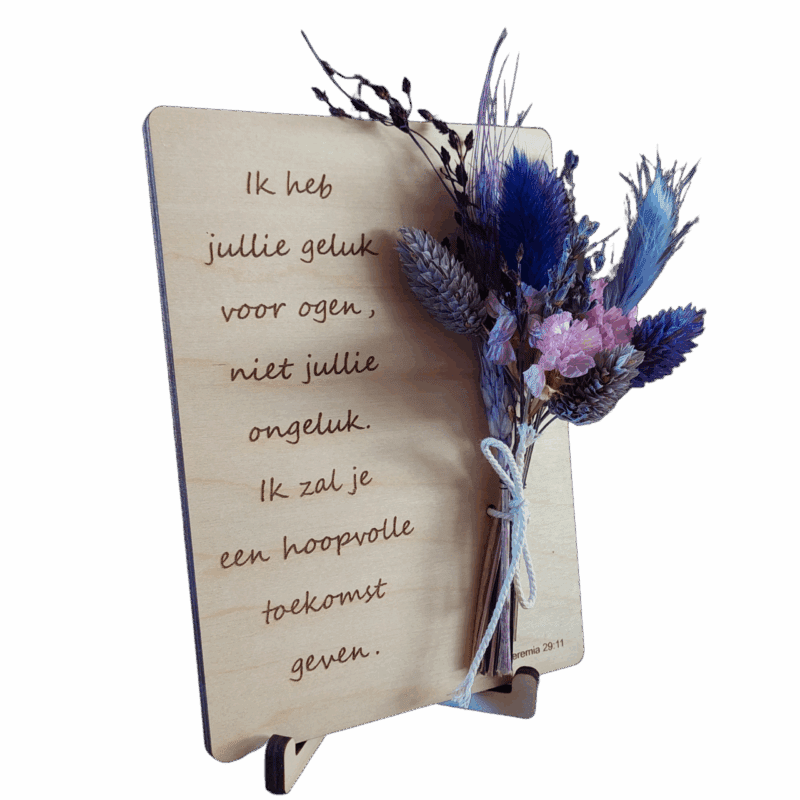 Ik heb
jullie geluk
voor ogen,
niet jullie
ongeluk.
Ik zal je
een hoopvolle
toekomst
geven.
eremia 29:11